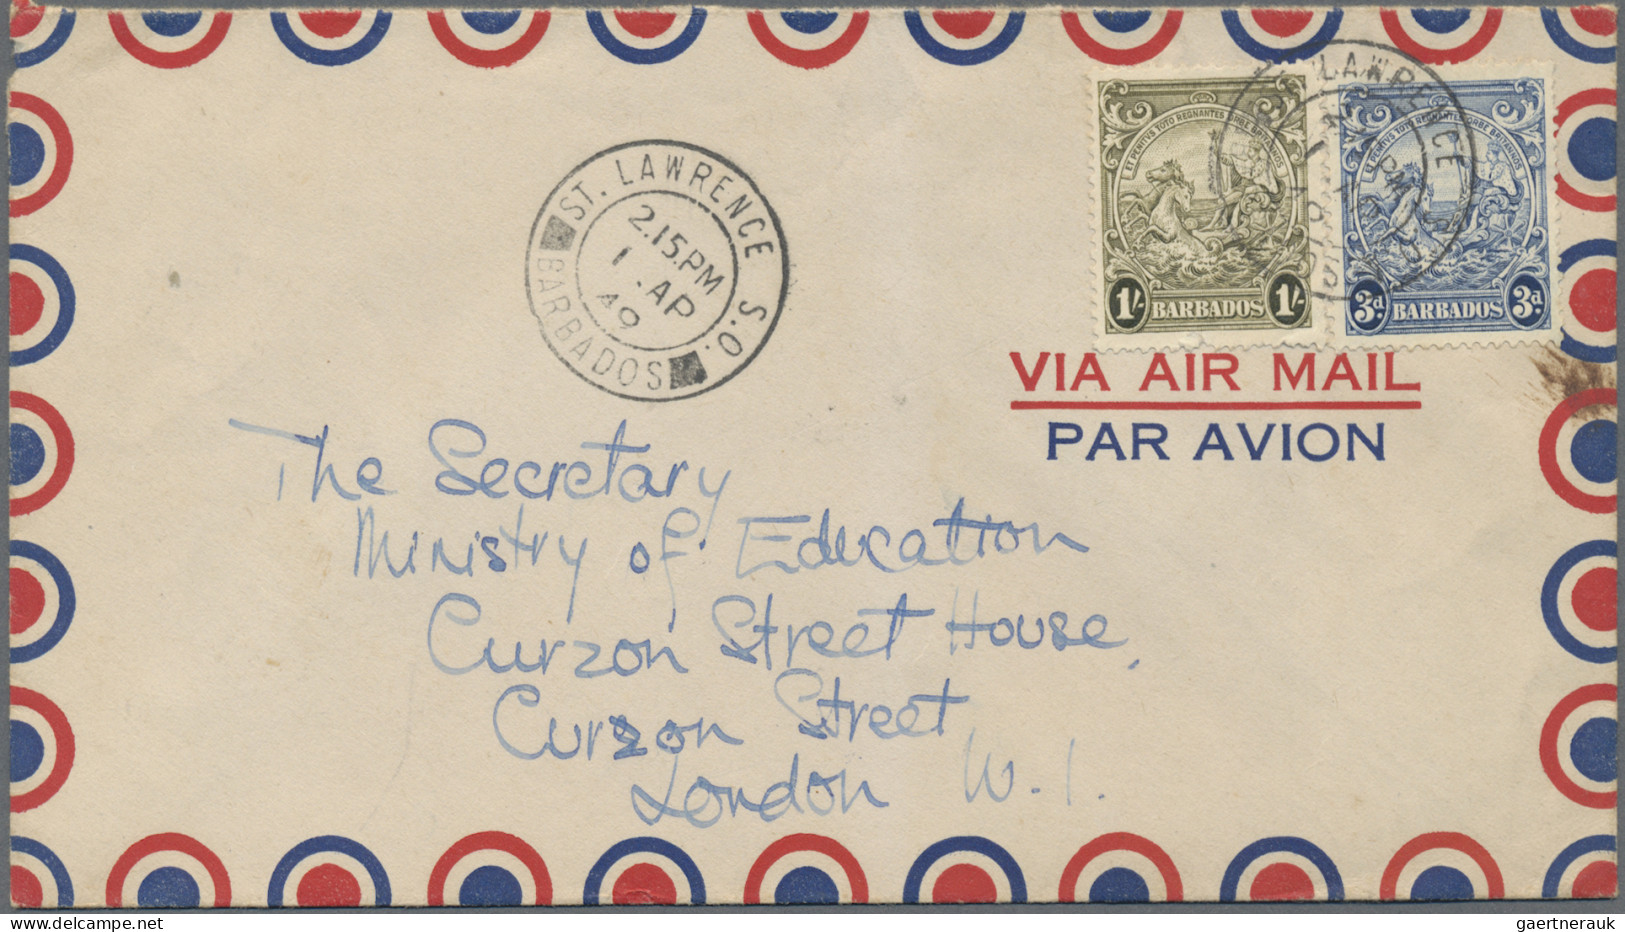 ST. LAWRENCE S.O.
2.15.PM
1 . AP
49
BARBADOS
LAWRENCE
PM
ET PENITVS TOTO REGNANTES ORBE BRITANNOS
1/- BARBADOS 1/-
ET PENITVS TOTO REGNANTES ORBE BRITANNOS
3d. BARBADOS 3d.
VIA AIR MAIL
PAR AVION
The Secretary
Ministry of Education
Curzon Street House,
Curzon Street
London W.1.
gaertnerauk